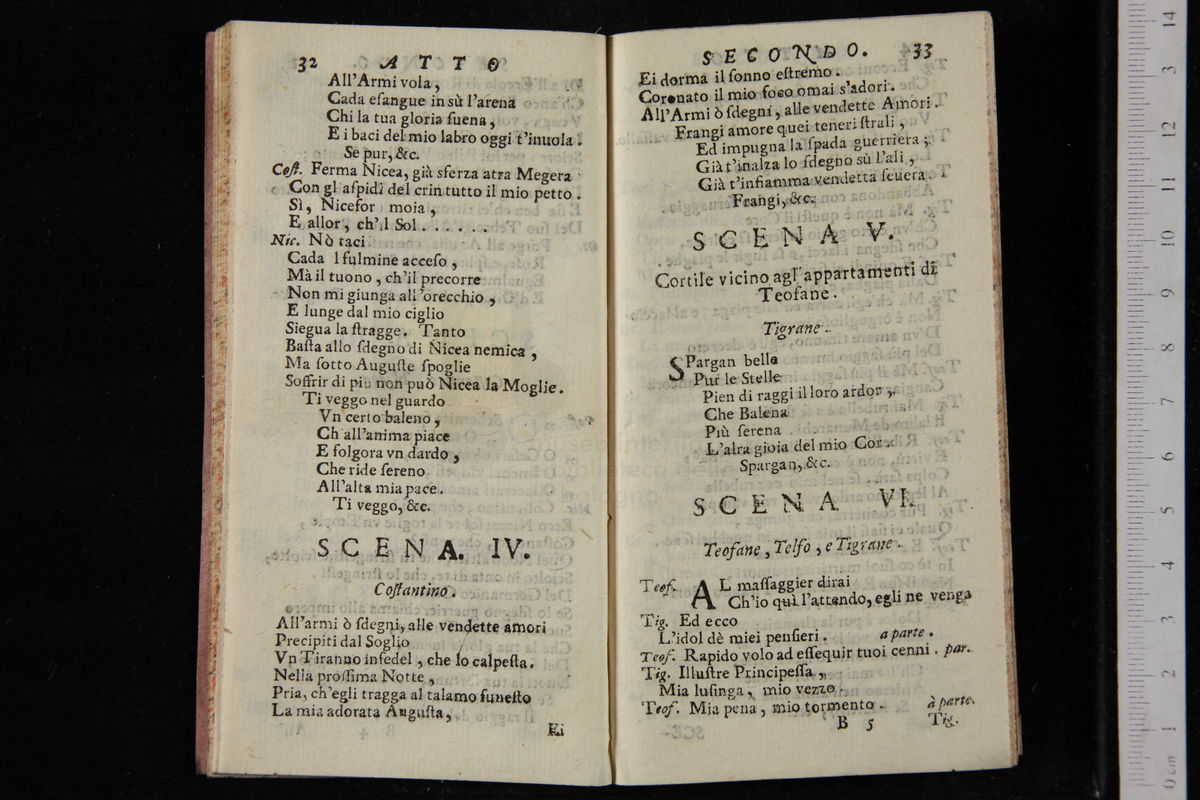 32 ATTO
All'Armi vola,
Cada eſangue in sù l'arena
Chi la tua gloria ſuena,
E i baci del mio labro oggi t'inuola.
Se pur, &c.
Coſt. Ferma Nicea, già sferza atra Megera
Con gl'aſpidi del crin tutto il mio petto.
Sì, Nicefor moia,
E allor, ch'il Sol......
Nic. Nò taci
Cada l fulmine acceſo,
Mà il tuono, ch'il precorre
Non mi giunga all'orecchio,
E lunge dal mio ciglio
Siegua la ſtragge. Tanto
Baſta allo ſdegno di Nicea nemica,
Ma ſotto Auguſte ſpoglie
Soffrir di piu non può Nicea la Moglie.
Ti veggo nel guardo
Vn certo baleno,
Ch'all'anima piace
E folgora vn dardo,
Che ride ſereno
All'alta mia pace.
Ti veggo, &c.
SCENA. IV.
Coſtantino.
All'armi ò ſdegni, alle vendette amori
Precipiti dal Soglio
Vn Tiranno infedel, che lo calpeſta.
Nella proſſima Notte,
Pria, ch'egli tragga al talamo funeſto
La mia adorata Auguſta,
Ei
SECONDO. 33
Ei dorma il ſonno eſtremo.
Coronato il mio foco omai s'adori.
All'Armi ò ſdegni, alle vendette Amori.
Frangi amore quei teneri ſtrali,
Ed impugna la ſpada guerriera;
Già t'inalza lo ſdegno sù l'ali,
Già t'infiamma vendetta ſeuera.
Frangi, &c.
SCENA V.
Cortile vicino agl'appartamenti di
Teofane.
Tigrane.
SPargan belle
Pur le Stelle
Pien di raggi il loro ardor,
Che Balena
Più ſerena
L'alra gioia del mio Cor
Spargan, &c.
SCENA VI.
Teofane, Telfo, e Tigrane.
Teof. AL maſſaggier dirai
Ch'io qui l'attendo, egli ne venga
Tig. Ed ecco
L'idol dè miei penſieri. a parte.
Teof. Rapido volo ad eſſequir tuoi cenni. par.
Tig. Illuſtre Principeſſa,
Mia luſinga, mio vezzo.
Teof. Mia pena, mio tormento. à parte.
B 5 Tig.
14
13
12
11
10
9
8
7
6
5
4
3
2
1
0 cm